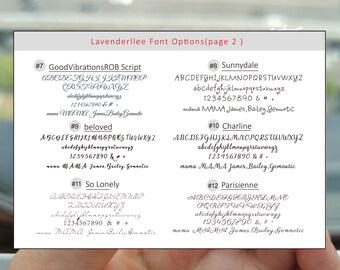 Lavenderllee Font Options(page 2 )
#7 GoodVibrationsROB Script
ABCDEFGHIJKLMNOP
QRSTUVWXYZ
abcdefghijklmnopqrstuvwxyz
1234567890 & # +
mama MAMA James,Bailey,Gemmatic
#8 Sunnydale
ABCDEFGHIJKLMNOPQRSTUVWXYZ
abcdefghijklmnopqrstuvwxyz
1234567890 & # +
mama MAMA James,Bailey,Gemmatic
#9 beloved
ABCDEFGHIJKLMNOPQRSTUVWXYZ
abcdefghijklmnopqrstuvwxyz
1234567890 & # +
mama MAMA James,Bailey,Gemmatic
#10 Charline
ABCDEFGHIJKLMNOPQRSTUVWXYZ
abcdefghijklmnopqrstuvwxyz
1234567890 & # +
mama MAMA James,Bailey,Gemmatic
#11 So Lonely
ABCDEFGHIJKLMNOP
QRSTUVWXYZ
abcdefghijklmnopqrstuvwxyz
1234567890 & # +
mama MAMA James,Bailey,Gemmatic
#12 Parisienne
ABCDEFGHIJKLMNO
PQRSTUVWXYZ
abcdefghijklmnopqrstuvwxyz
1234567890 & # +
mama MAMA James,Bailey,Gemmatic